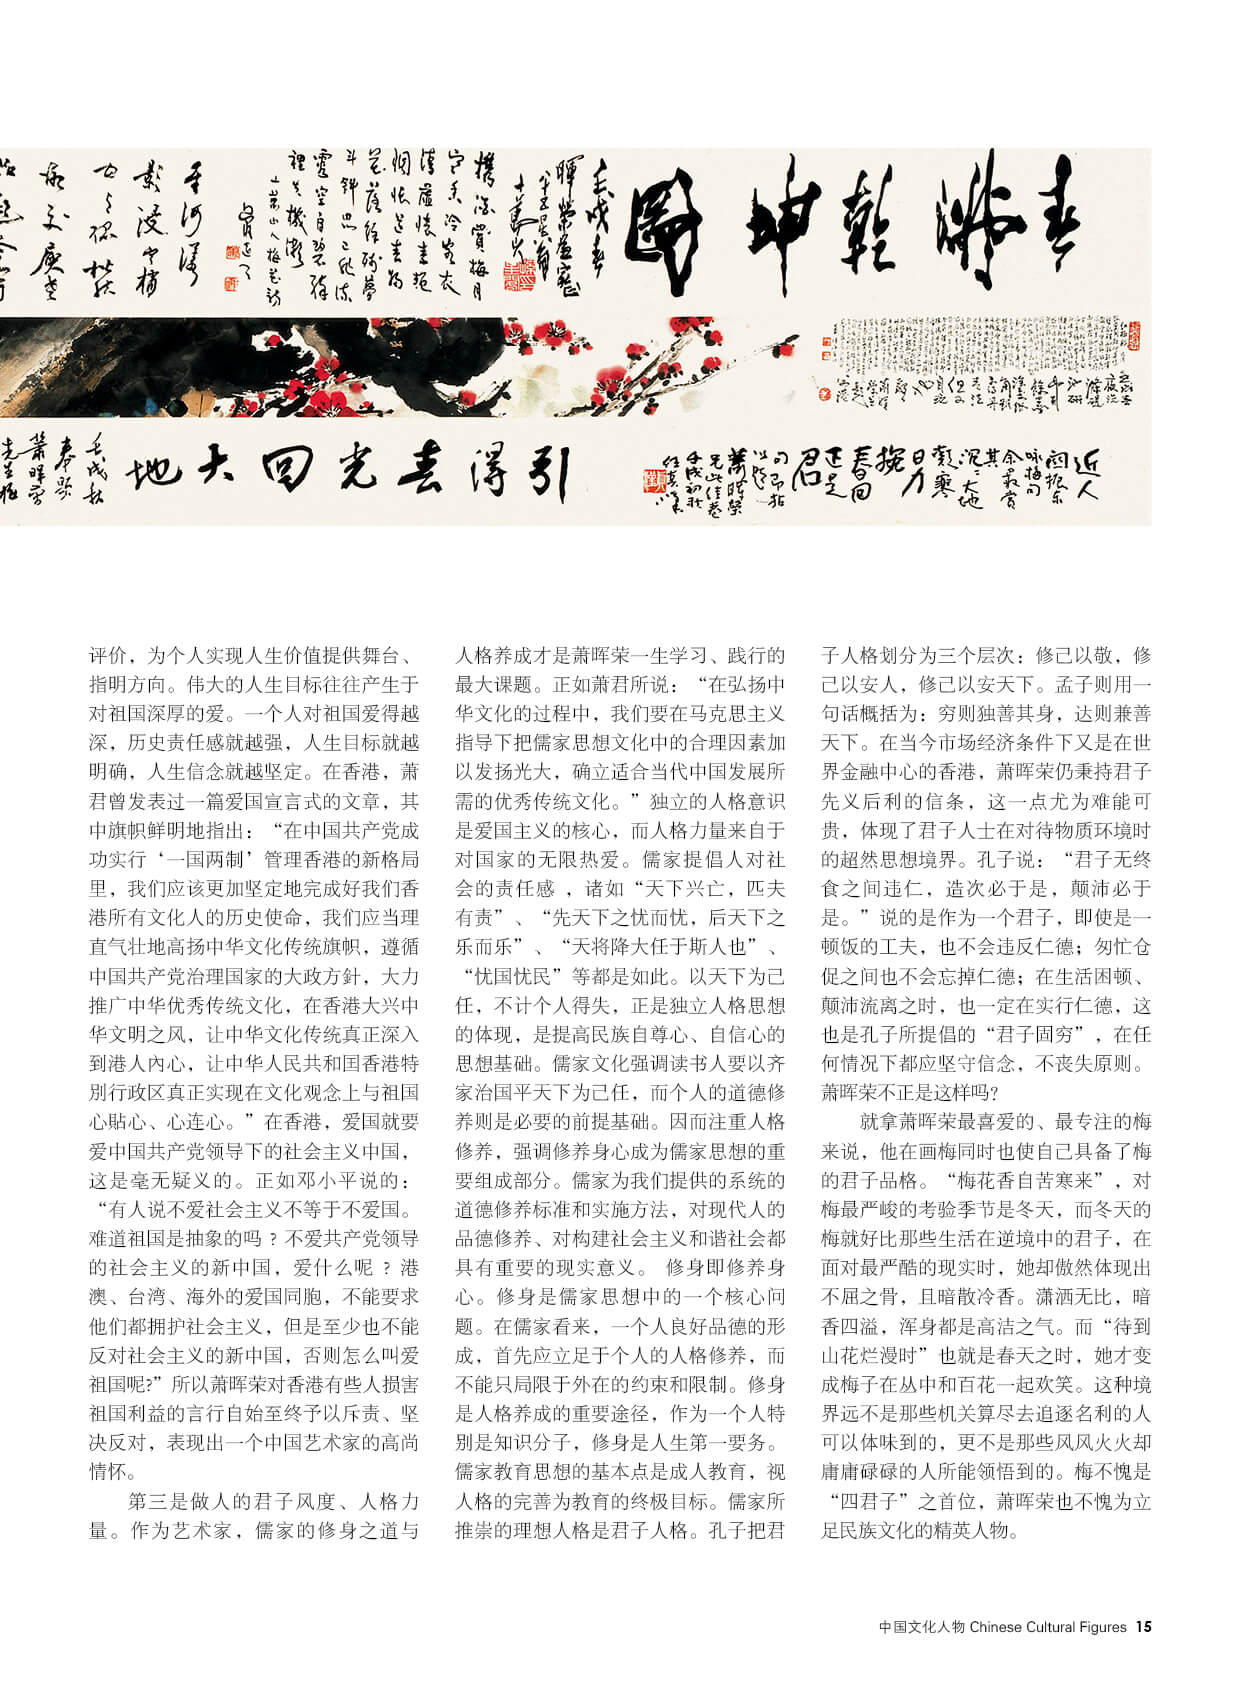 春满乾坤圖
引得春光回大地
评价，为个人实现人生价值提供舞台、
指明方向。伟大的人生目标往往产生于
对祖国深厚的爱。一个人对祖国爱得越
深，历史责任感就越强，人生目标就越
明确，人生信念就越坚定。在香港，萧
君曾发表过一篇爱国宣言式的文章，其
中旗帜鲜明地指出：“在中国共产党成
功实行‘一国两制’管理香港的新格局
里，我们应该更加坚定地完成好我们香
港所有文化人的历史使命，我们应当理
直气壮地高扬中华文化传统旗帜，遵循
中国共产党治理国家的大政方針，大力
推广中华优秀传统文化，在香港大兴中
华文明之风，让中华文化传统真正深入
到港人內心，让中华人民共和囯香港特
別行政区真正实现在文化观念上与祖国
心貼心、心连心。”在香港，爱国就要
爱中国共产党领导下的社会主义中国，
这是毫无疑义的。正如邓小平说的：
“有人说不爱社会主义不等于不爱国。
难道祖国是抽象的吗？不爱共产党领导
的社会主义的新中国，爱什么呢？港
澳、台湾、海外的爱国同胞，不能要求
他们都拥护社会主义，但是至少也不能
反对社会主义的新中国，否则怎么叫爱
祖国呢?”所以萧晖荣对香港有些人损害
祖国利益的言行自始至终予以斥责、坚
决反对，表现出一个中国艺术家的高尚
情怀。
第三是做人的君子风度、人格力
量。作为艺术家，儒家的修身之道与
人格养成才是萧晖荣一生学习、践行的
最大课题。正如萧君所说：“在弘扬中
华文化的过程中，我们要在马克思主义
指导下把儒家思想文化中的合理因素加
以发扬光大，确立适合当代中国发展所
需的优秀传统文化。”独立的人格意识
是爱国主义的核心，而人格力量来自于
对国家的无限热爱。儒家提倡人对社
会的责任感，诸如“天下兴亡，匹夫
有责”、“先天下之忧而忧，后天下之
乐而乐”、“天将降大任于斯人也”、
“忧国忧民”等都是如此。以天下为己
任，不计个人得失，正是独立人格思想
的体现，是提高民族自尊心、自信心的
思想基础。儒家文化强调读书人要以齐
家治国平天下为己任，而个人的道德修
养则是必要的前提基础。因而注重人格
修养，强调修养身心成为儒家思想的重
要组成部分。儒家为我们提供的系统的
道德修养标准和实施方法，对现代人的
品德修养、对构建社会主义和谐社会都
具有重要的现实意义。 修身即修养身
心。修身是儒家思想中的一个核心问
题。在儒家看来，一个人良好品德的形
成，首先应立足于个人的人格修养，而
不能只局限于外在的约束和限制。修身
是人格养成的重要途径，作为一个人特
别是知识分子，修身是人生第一要务。
儒家教育思想的基本点是成人教育，视
人格的完善为教育的终极目标。儒家所
推崇的理想人格是君子人格。孔子把君
子人格划分为三个层次：修己以敬，修
己以安人，修己以安天下。孟子则用一
句话概括为：穷则独善其身，达则兼善
天下。在当今市场经济条件下又是在世
界金融中心的香港，萧晖荣仍秉持君子
先义后利的信条，这一点尤为难能可
贵，体现了君子人士在对待物质环境时
的超然思想境界。孔子说：“君子无终
食之间违仁，造次必于是，颠沛必于
是。”说的是作为一个君子，即使是一
顿饭的工夫，也不会违反仁德；匆忙仓
促之间也不会忘掉仁德；在生活困顿、
颠沛流离之时，也一定在实行仁德，这
也是孔子所提倡的“君子固穷”，在任
何情况下都应坚守信念，不丧失原则。
萧晖荣不正是这样吗?
就拿萧晖荣最喜爱的、最专注的梅
来说，他在画梅同时也使自己具备了梅
的君子品格。“梅花香自苦寒来”，对
梅最严峻的考验季节是冬天，而冬天的
梅就好比那些生活在逆境中的君子，在
面对最严酷的现实时，她却傲然体现出
不屈之骨，且暗散冷香。潇洒无比，暗
香四溢，浑身都是高洁之气。而“待到
山花烂漫时”也就是春天之时，她才变
成梅子在丛中和百花一起欢笑。这种境
界远不是那些机关算尽去追逐名利的人
可以体味到的，更不是那些风风火火却
庸庸碌碌的人所能领悟到的。梅不愧是
“四君子”之首位，萧晖荣也不愧为立
足民族文化的精英人物。
中国文化人物 Chinese Cultural Figures 15